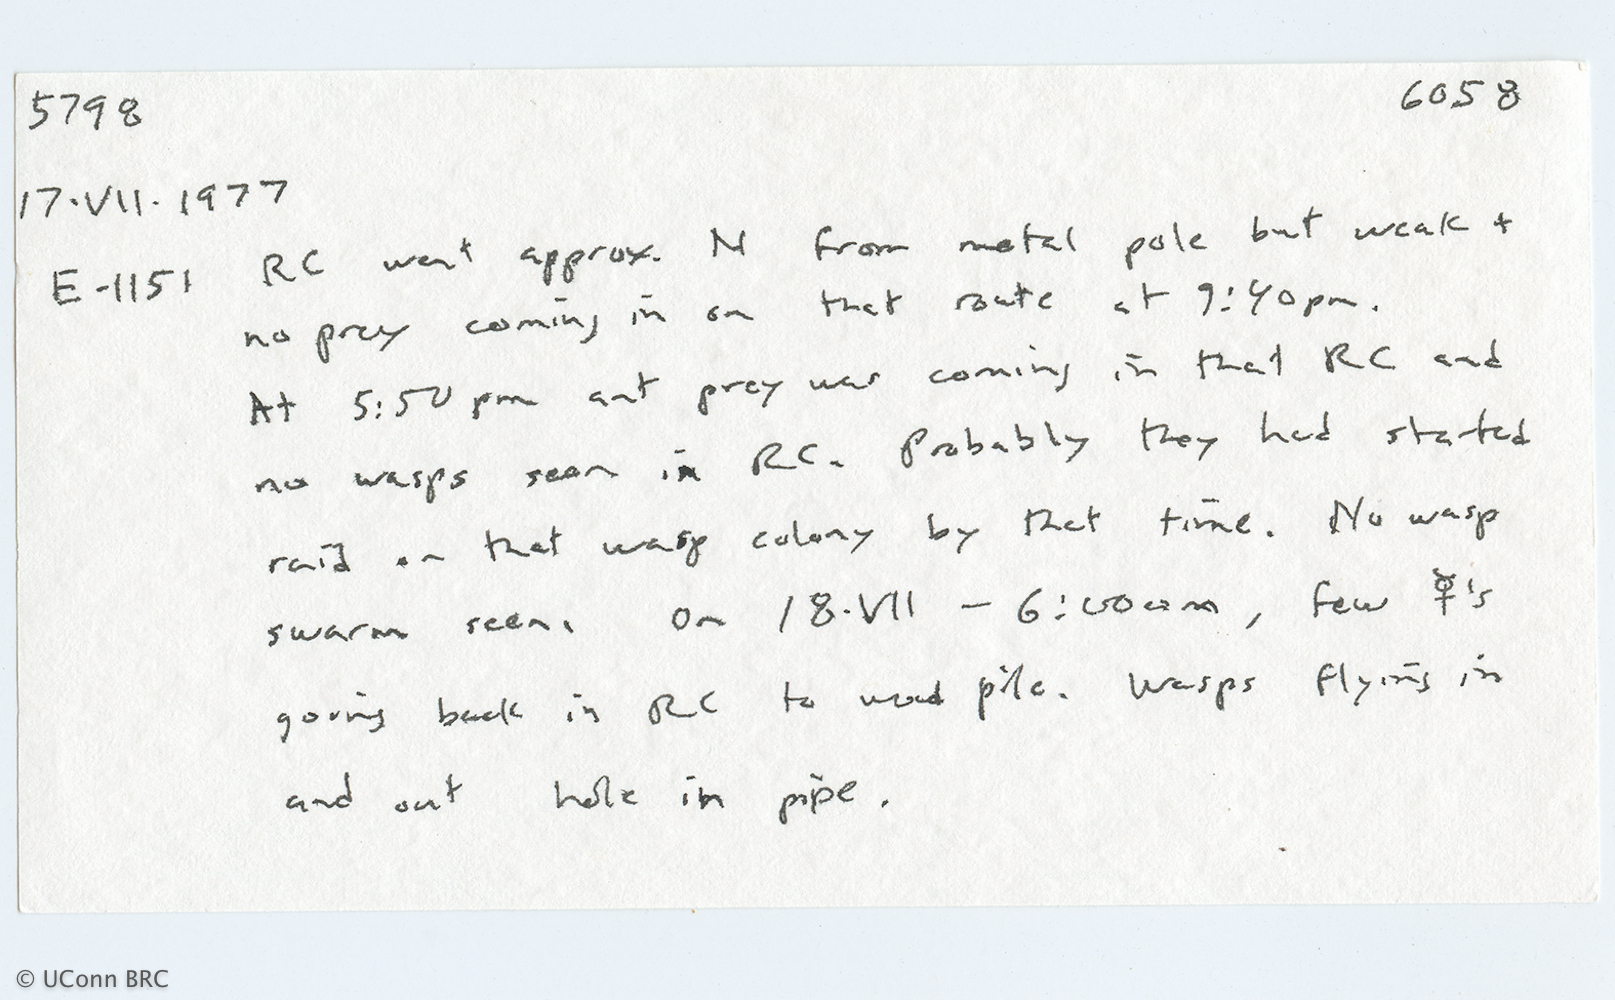 5798 6058
17.VII.1977
E-1151 RC went approx. N from metal pole but weak +
no prey coming in on that route at 9:40pm.
At 5:50pm ant prey was coming in that RC and
no wasps seen in RC. Probably they had started
raid on that wasp colony by that time. No wasp
swarm seen. On 18.VII - 6:00am, few ☿'s
going back in RC to wood pile. Wasps flying in
and out hole in pipe.
© UConn BRC